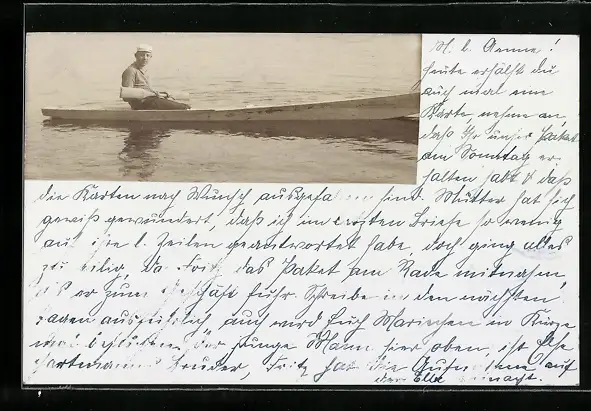 M. l. Aenne!
heute erhälst du
auch mal eine
Karte, nehme an,
daß Ihr unser Paket
am Sonntag er-
halten habt & daß
die Karten nach Wunsch ausgefallen sind. Mutter hat sich
gewiß gewundert, daß ich im ersten Briefe so wenig
auf ihre l. Zeilen geantwortet habe, doch ging alles
zu eilig, da Fritz das Paket am Rade mitnahm,
als er zum Geschäft fuhr. Schreibe in den nächsten
Tagen ausführlich, auch wird Euch Mariechen in Kürze
mal Der junge Mann hier oben, ist Else
Hartmanns Bruder, Fritz hat die Aufnahme auf
der Elbe gemacht.